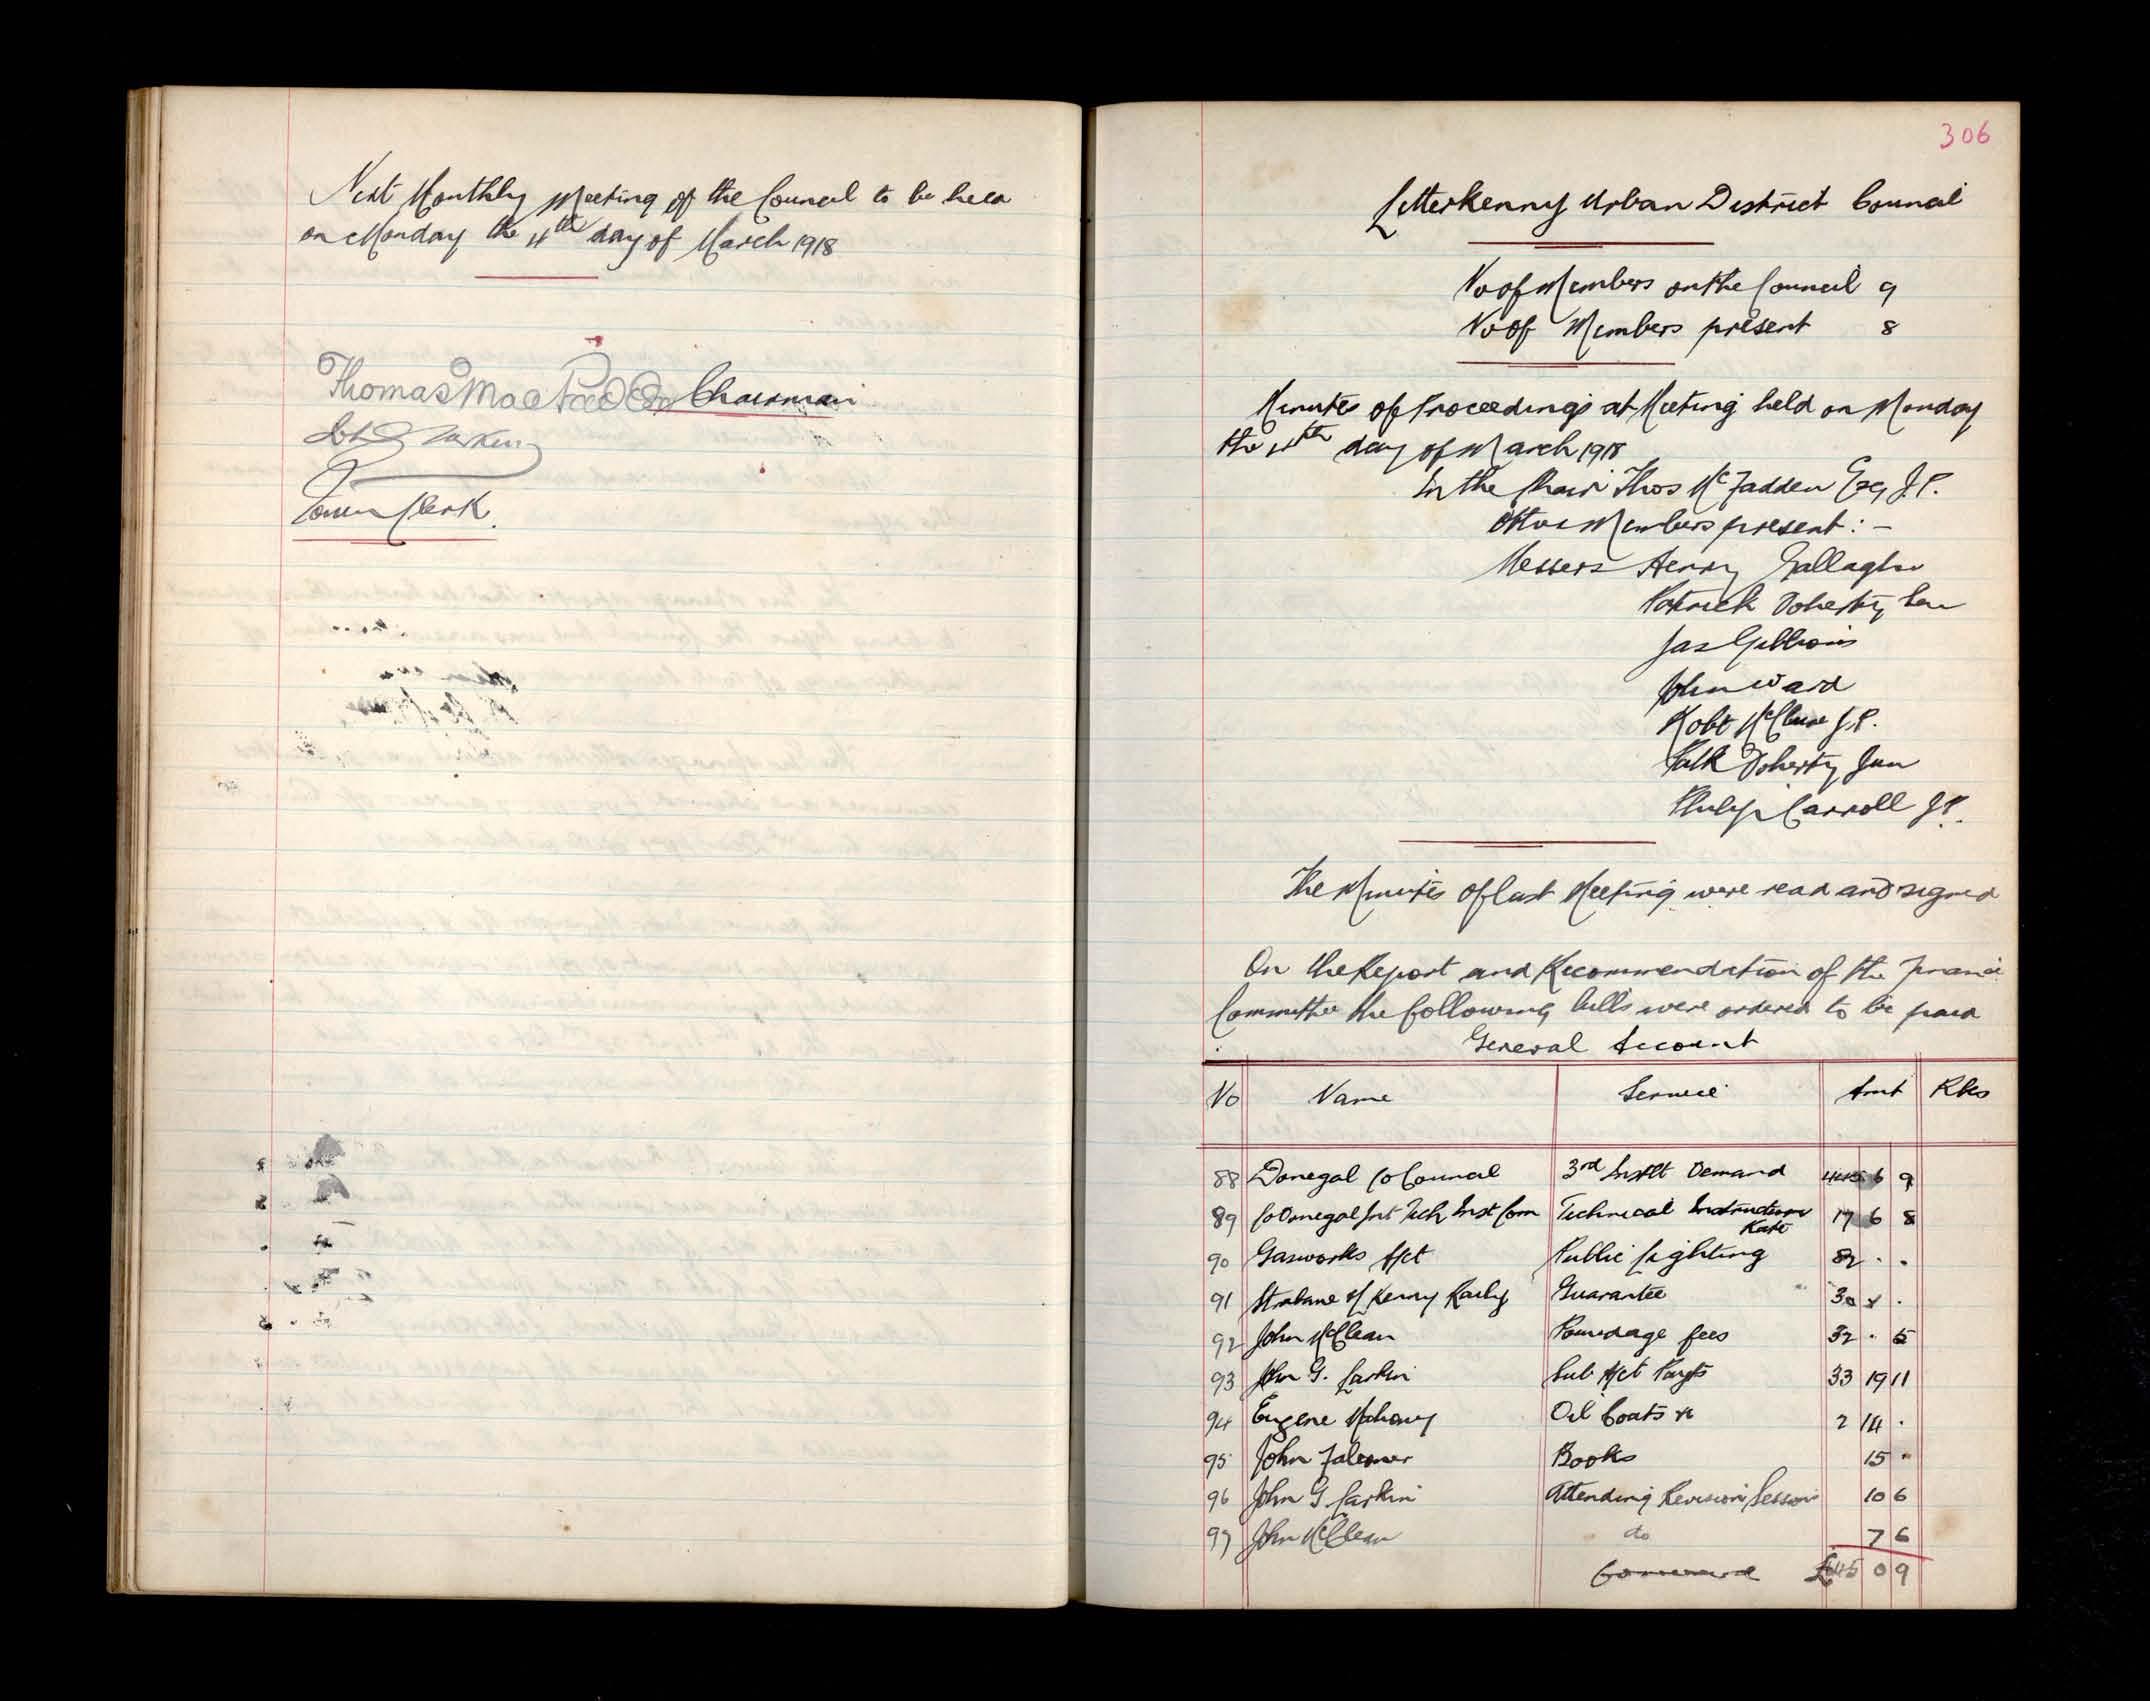 Next Monthly Meeting of the Council to be held
on Monday the 4th day of March 1918
Thomas MacFadden Chairman
John G Larkin
Town Clerk.
306
Letterkenny Urban District Council
No of Members on the Council 9
No of Members present 8
Minutes of Proceedings at Meeting held on Monday
the 4th day of March 1918
In the Chair Thos McFadden Esq J.P.
Other Members present :-
Messers Henry Gallagher
Patrick Doherty Sen
Jas Gibbons
John Ward
Robt McClure J.P.
Patk Doherty Jun
Philip Carroll J.P.
The Minutes of last Meeting were read and signed
On the Report and Recommendation of the Finance
Committee the following bills were ordered to be paid
General Account
No Name Service Amt Rks
88 Donegal Co Council 3rd Instlt Demand 445 6 9
89 Co Donegal Jnt Tech Inst Com Technical Instruction Rate 17 6 8
90 Gasworks Act Public Lighting 82 . .
91 Strabane & L Kenny Railwy Guarantee 30 .
92 John McClean Poundage fees 32 . 5
93 John G. Larkin Sub Act Paymts 33 19 11
94 Eugene Mahony Oil Coats &c 2 14 .
95 John Falconer Books 15 .
96 John G Larkin Attending Revision Session 10 6
97 John McClean do 7 6
£645 0 9